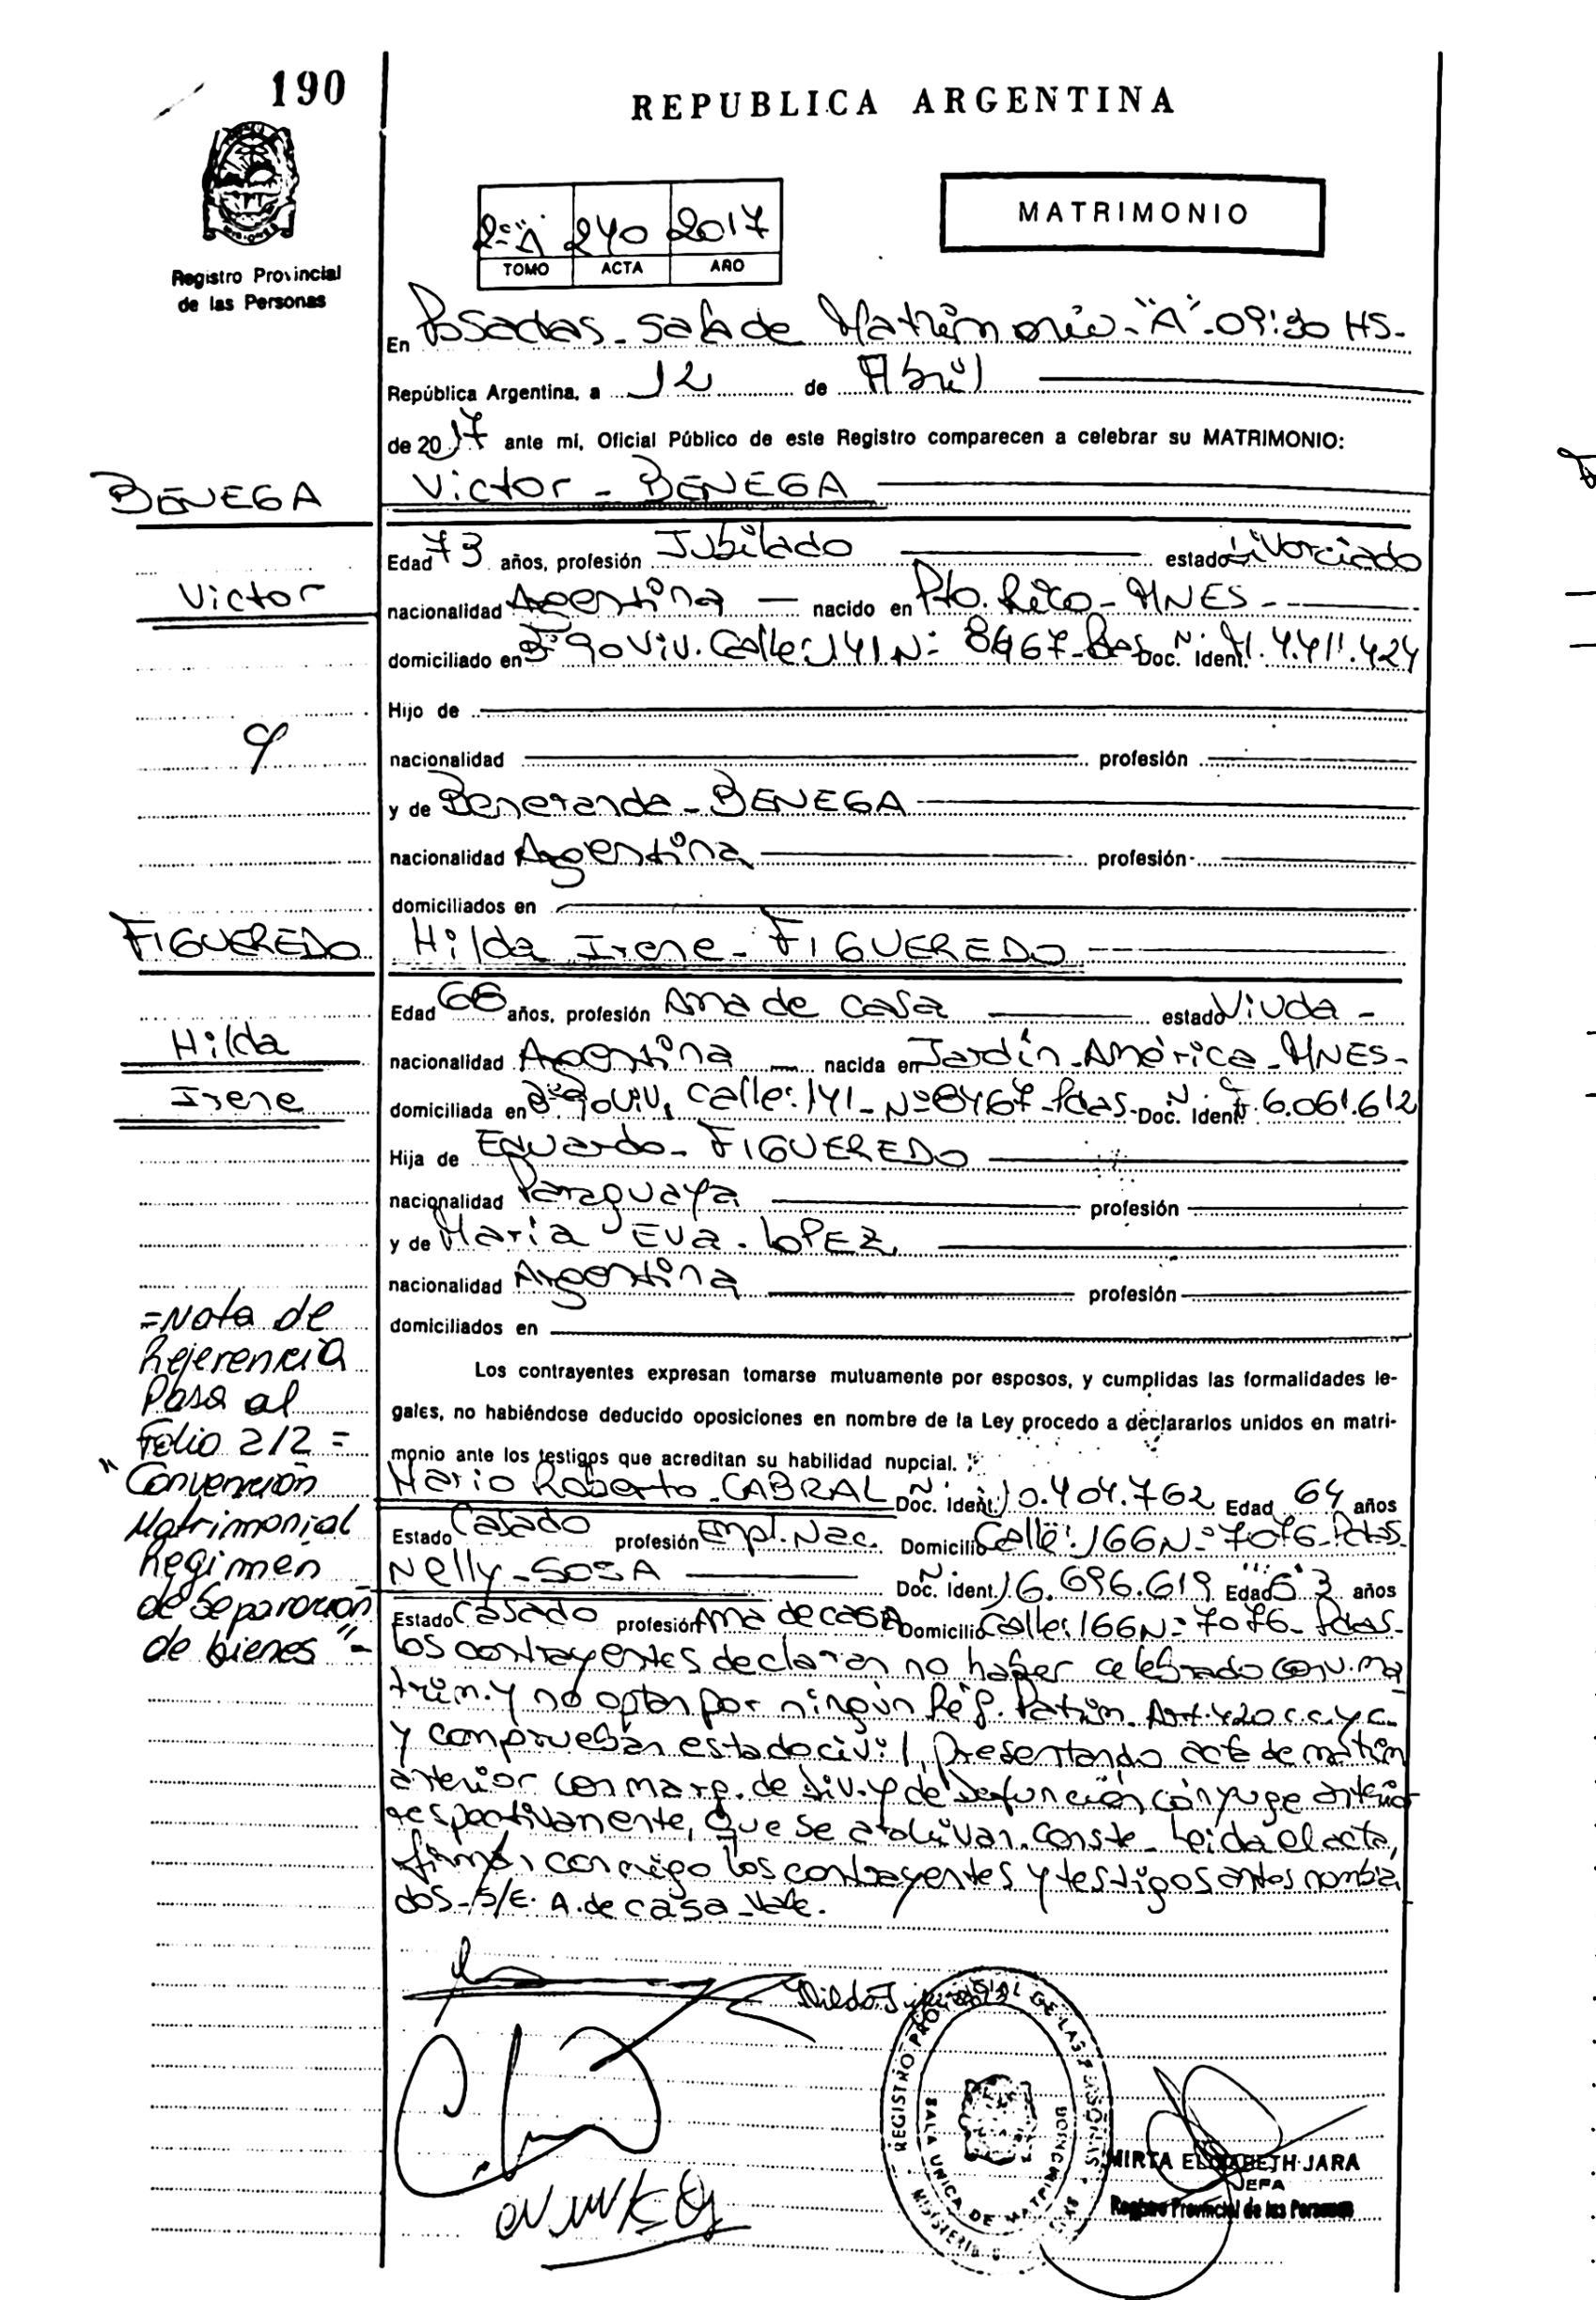 190
REPUBLICA ARGENTINA
Registro Provincial
de las Personas
2º "A" 240 2017
TOMO ACTA AÑO
MATRIMONIO
En Posadas - Sala de Matrimonio - "A" - 09:30 HS -
República Argentina, a 12 de Abril
de 2017 ante mi, Oficial Público de este Registro comparecen a celebrar su MATRIMONIO:
BENEGA
Victor - BENEGA
Edad 73 años, profesión Jubilado estado Divorciado
Victor
nacionalidad Argentina nacido en Pto. Rico - MNES -
domiciliado en 90 Viv. Calle: 141 Nº 8467 - Pdas Doc. Ident. M. 4.411.424
Hijo de
y
nacionalidad profesión
y de Beneranda - BENEGA
nacionalidad Argentina profesión
domiciliados en
FIGUEREDO
Hilda Irene - FIGUEREDO
Edad 66 años, profesión Ama de casa estado Viuda -
Hilda
nacionalidad Argentina nacida en Jardín América - MNES -
Irene
domiciliada en 90 Viv. Calle: 141 - Nº 8467 - Pdas - Doc. Ident. F. 6.061.612
Hija de Eduardo - FIGUEREDO
nacionalidad Paraguaya profesión
y de María Eva - LOPEZ
nacionalidad Argentina profesión
domiciliados en
= Nota de
Referencia
Pasa al
Folio 212 =
"Convención
Matrimonial
Regimen
de Separación
de bienes" -
Los contrayentes expresan tomarse mutuamente por esposos, y cumplidas las formalidades le-
gales, no habiéndose deducido oposiciones en nombre de la Ley procedo a declararlos unidos en matri-
monio ante los testigos que acreditan su habilidad nupcial.
Mario Roberto - CABRAL Doc. Ident. 10.404.762 Edad 64 años
Estado Casado profesión Empl. Nac. Domicilio Calle: 166 Nº 7076 - Pdas -
Nelly - SOSA Doc. Ident. 16.696.619 Edad 53 años
Estado Casado profesión Ama de casa Domicilio Calle: 166 Nº 7076 - Pdas -
Los contrayentes declaran no haber celebrado conv. ma
trim. y no optan por ningún Rég. Patrim. Art. 420 c.c.y c.
y comprueban estado civil, presentando acta de matrim
anterior con marg. de Div. y de Defunción cónyuge anterior
respectivamente, que se archivan. Conste - Leida el acta,
firman conmigo los contrayentes y testigos antes nombra
dos - S/E. A. de casa - Vale.
REGISTRO PROVINCIAL DE LAS PERSONAS
SALA UNICA DE MATRIMONIO
MIRTA ELIZABETH JARA
JEFA
Registro Provincial de las Personas